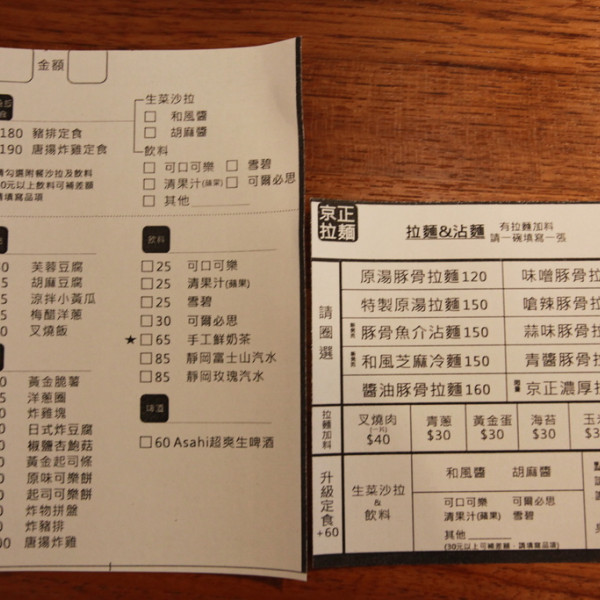 金額
180 豬排定食
190 唐揚炸雞定食
勾選附餐沙拉及飲料
0元以上飲料可補差額
填寫品項
生菜沙拉
和風醬
胡麻醬
飲料
可口可樂 雪碧
清果汁(蘋果) 可爾必思
其他
芙蓉豆腐
胡麻豆腐
涼拌小黃瓜
梅醋洋蔥
叉燒飯
黃金脆薯
洋蔥圈
炸雞塊
日式炸豆腐
椒鹽杏鮑菇
黃金起司條
原味可樂餅
起司可樂餅
炸物拼盤
炸豬排
唐揚炸雞
飲料
25 可口可樂
25 清果汁(蘋果)
25 雪碧
30 可爾必思
★ 65 手工鮮奶茶
85 靜岡富士山汽水
85 靜岡玫瑰汽水
啤酒
60 Asahi超爽生啤酒
京正拉麵
拉麵&沾麵
有拉麵加料
請一碗填寫一張
請圈選
原湯豚骨拉麵120 味噌豚骨拉
特製原湯拉麵150 嗆辣豚骨拉
豚骨魚介沾麵150 蒜味豚骨拉
和風芝麻冷麵150 青醬豚骨拉
醬油豚骨拉麵160 京正濃厚拉
拉麵加料
叉燒肉(一片)$40 青蔥$30 黃金蛋$30 海苔$30 玉米
升級定食+60
生菜沙拉&飲料
和風醬 胡麻醬
可口可樂 可爾必思
清果汁(蘋果) 雪碧
其他
(30元以上可補差額,請填寫品項)